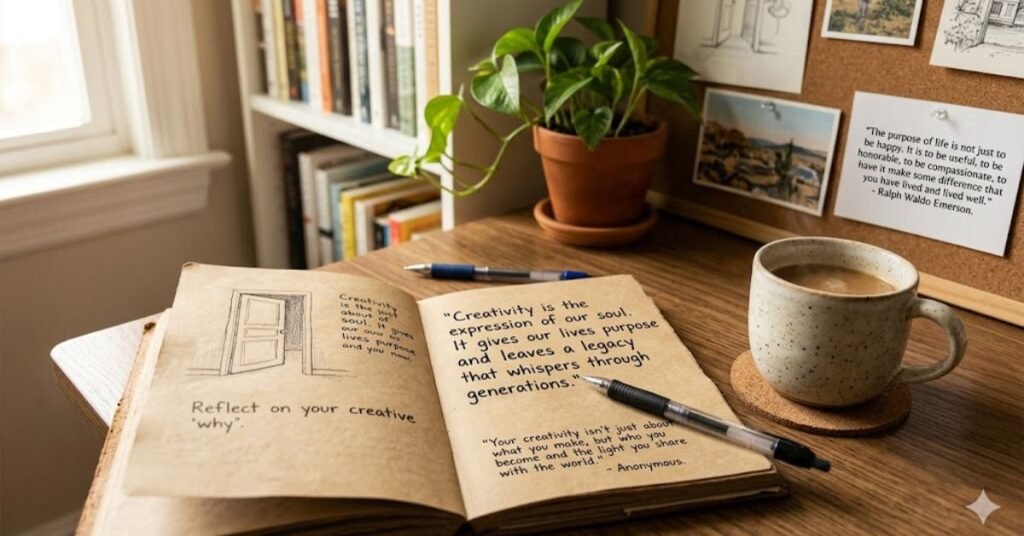 Creativity
is the just
about of
soul. It gives
our our os
lives purpose
and you now.
Reflect on your creative
'why'.
"Creativity is the
expression of our soul.
It gives our lives purpose
and leaves a legacy
that whispers through
generations."
"Your creativity isn't just about
what you make, but who you
become and the light you share
with the world." - Anonymous.
"The purpose of life is not just to
be happy. It is to be useful, to be
honorable, to be compassionate, to
have it make some difference that
you have lived and lived well."
- Ralph Waldo Emerson.